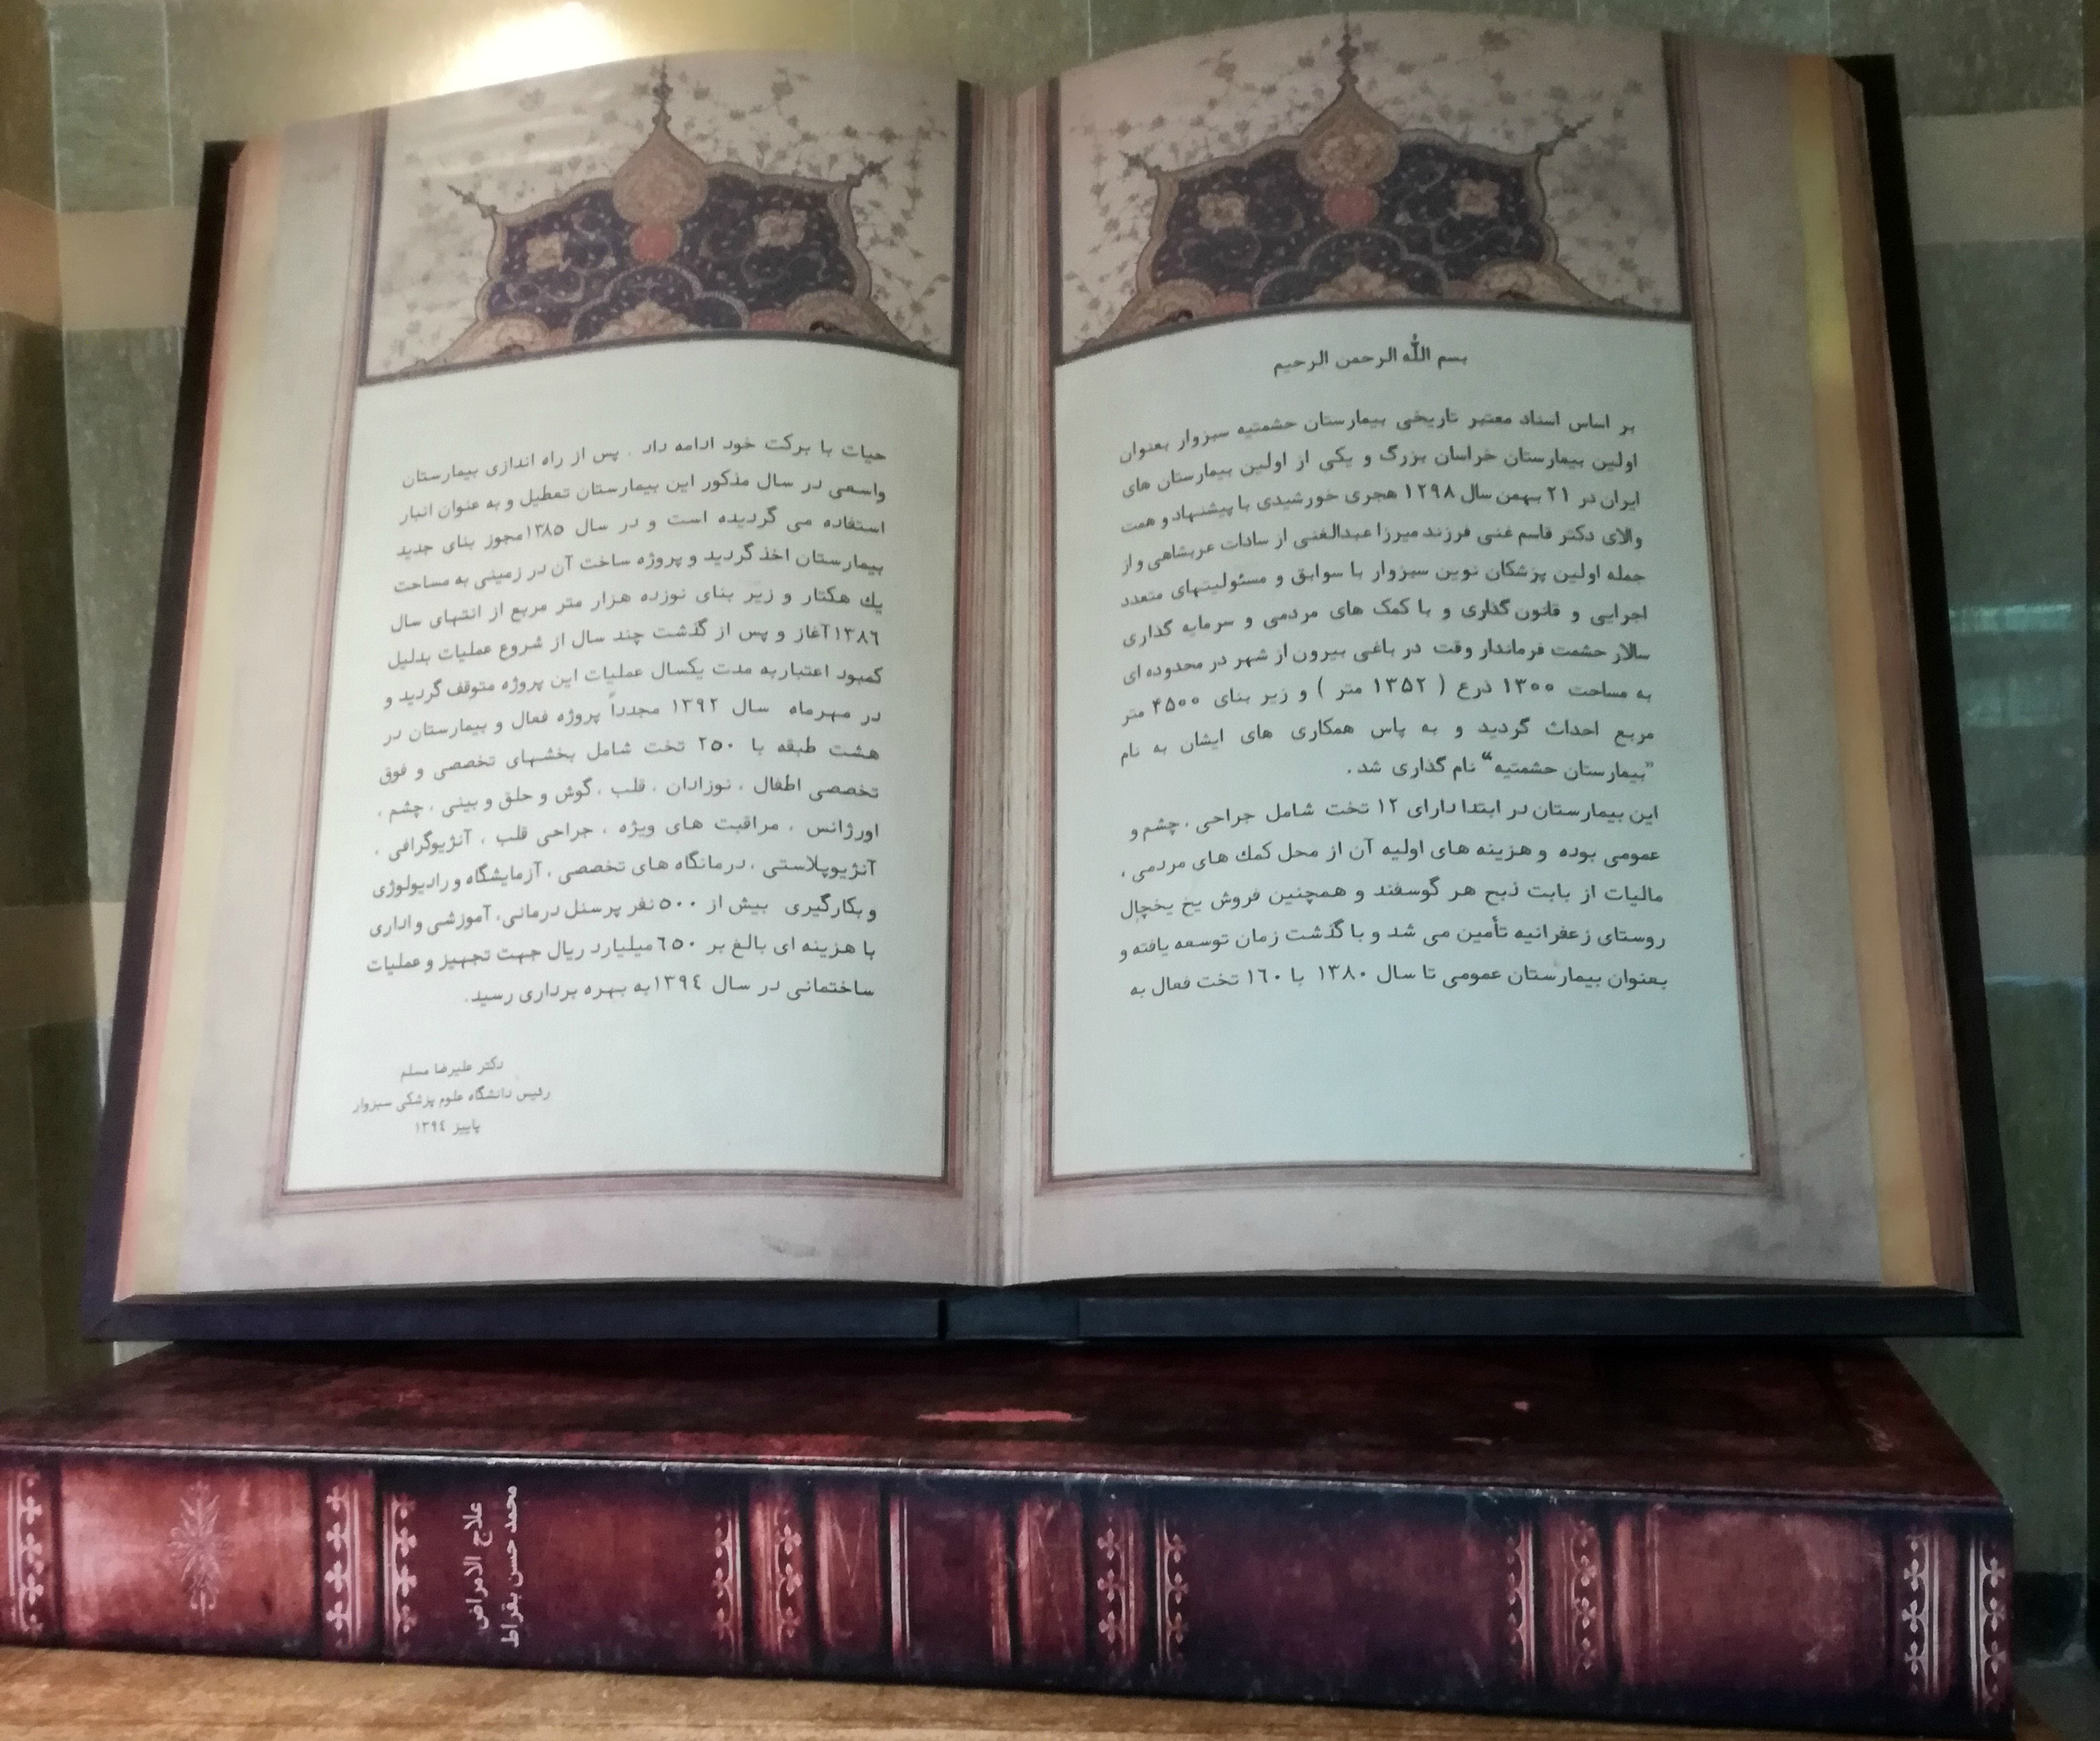 بسم الله الرحمن الرحیم
بر اساس اسناد معتبر تاریخی بیمارستان حشمتیه سبزوار بعنوان
اولین بیمارستان خراسان بزرگ و یکی از اولین بیمارستان های
ایران در ۲۱ بهمن سال ۱۲۹۸ هجری خورشیدی با پیشنهاد و همت
والای دکتر قاسم غنی فرزند میرزا عبدالغنی از سادات عربشاهی و از
جمله اولین پزشکان نوین سبزوار با سوابق و مسئولیتهای متعدد
اجرایی و قانون گذاری و با کمک های مردمی و سرمایه گذاری
سالار حشمت فرماندار وقت در باغی بیرون از شهر در محدوده ای
به مساحت ۱۳۰۰ ذرع ( ۱۳۵۲ متر ) و زیر بنای ۴۵۰۰ متر
مربع احداث گردید و به پاس همکاری های ایشان به نام
"بیمارستان حشمتیه" نام گذاری شد.
این بیمارستان در ابتدا دارای ۱۲ تخت شامل جراحی ، چشم و
عمومی بوده و هزینه های اولیه آن از محل کمك های مردمی ،
مالیات از بابت ذبح هر گوسفند و همچنین فروش یخ یخچال
روستای زعفرانیه تأمین می شد و با گذشت زمان توسعه یافته و
بعنوان بیمارستان عمومی تا سال ۱۳۸۰ با ۱٦۰ تخت فعال به
حیات با برکت خود ادامه داد . پس از راه اندازی بیمارستان
واسعی در سال مذکور این بیمارستان تعطیل و به عنوان انبار
استفاده می گردیده است و در سال ۱۳۸۵مجوز بنای جدید
بیمارستان اخذ گردید و پروژه ساخت آن در زمینی به مساحت
یك هکتار و زیر بنای نوزده هزار متر مربع از انتهای سال
۱۳۸٦آغاز و پس از گذشت چند سال از شروع عملیات بدلیل
کمبود اعتبار به مدت یکسال عملیات این پروژه متوقف گردید و
در مهرماه سال ۱۳۹۲ مجدداً پروژه فعال و بیمارستان در
هشت طبقه با ۲۵۰ تخت شامل بخشهای تخصصی و فوق
تخصصی اطفال ، نوزادان ، قلب ، گوش و حلق و بینی ، چشم ،
اورژانس ، مراقبت های ویژه ، جراحی قلب ، آنژیوگرافی ،
آنژیوپلاستی ، درمانگاه های تخصصی ، آزمایشگاه و رادیولوژی
و بکارگیری بیش از ۵۰۰ نفر پرسنل درمانی، آموزشی و اداری
با هزینه ای بالغ بر ٦۵۰ میلیارد ریال جهت تجهیز و عملیات
ساختمانی در سال ۱۳۹٤به بهره برداری رسید.
دکتر علیرضا مسلم
رئیس دانشگاه علوم پزشکی سبزوار
پاییز ۱۳۹٤
علاج الامراض
محمد حسن بقراط